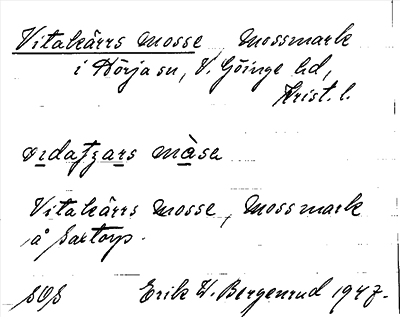 Vitakärrs mosse, Mossmark
i Hörja sn, V. Göinge hd,
Krist. l.
Vitakärrs mosse, Mossmark
å Sartorp.
SOS Erik W. Bergenrud 1947.